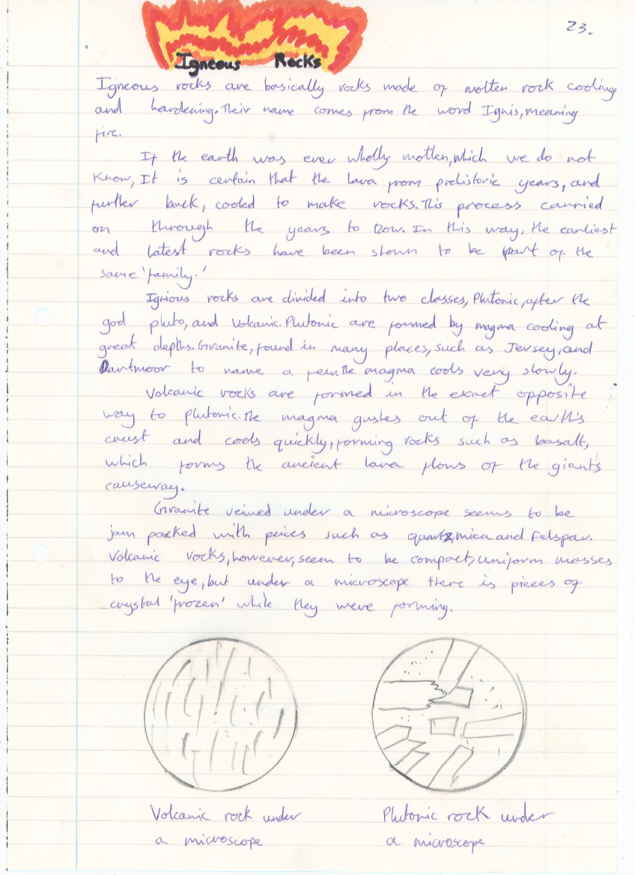 23.
Igneous Rocks
Igneous rocks are basically rocks made of molten rock cooling
and hardening. Their name comes from the word Ignis, meaning
fire.
If the earth was ever wholly molten, which we do not
know, It is certain that the lava from prehistoric years, and
further back, cooled to make rocks. This process carried
on through the years to now. In this way, the earliest
and latest rocks have been shown to be part of the
same 'family.'
Ignious rocks are divided into two classes, Plutonic, after the
god pluto, and Volcanic. Plutonic are formed by magma cooling at
great depths. Granite, found in many places, such as Jersey, and
Dartmoor to name a few. the magma cools very slowly.
Volcanic rocks are formed in the exact opposite
way to plutonic. The magma gushes out of the earth's
crust and cools quickly, forming rocks such as basalt,
which forms the ancient lava flows of the giants
causeway.
Granite veined under a microscope seems to be
jam packed with peices such as quartz, mica and Felspar.
Volcanic rocks, however, seem to be compact, uniform masses
to the eye, but under a microscope there is pieces of
crystal 'frozen' while they were forming.
Volcanic rock under
a microscope
Plutonic rock under
a microscope